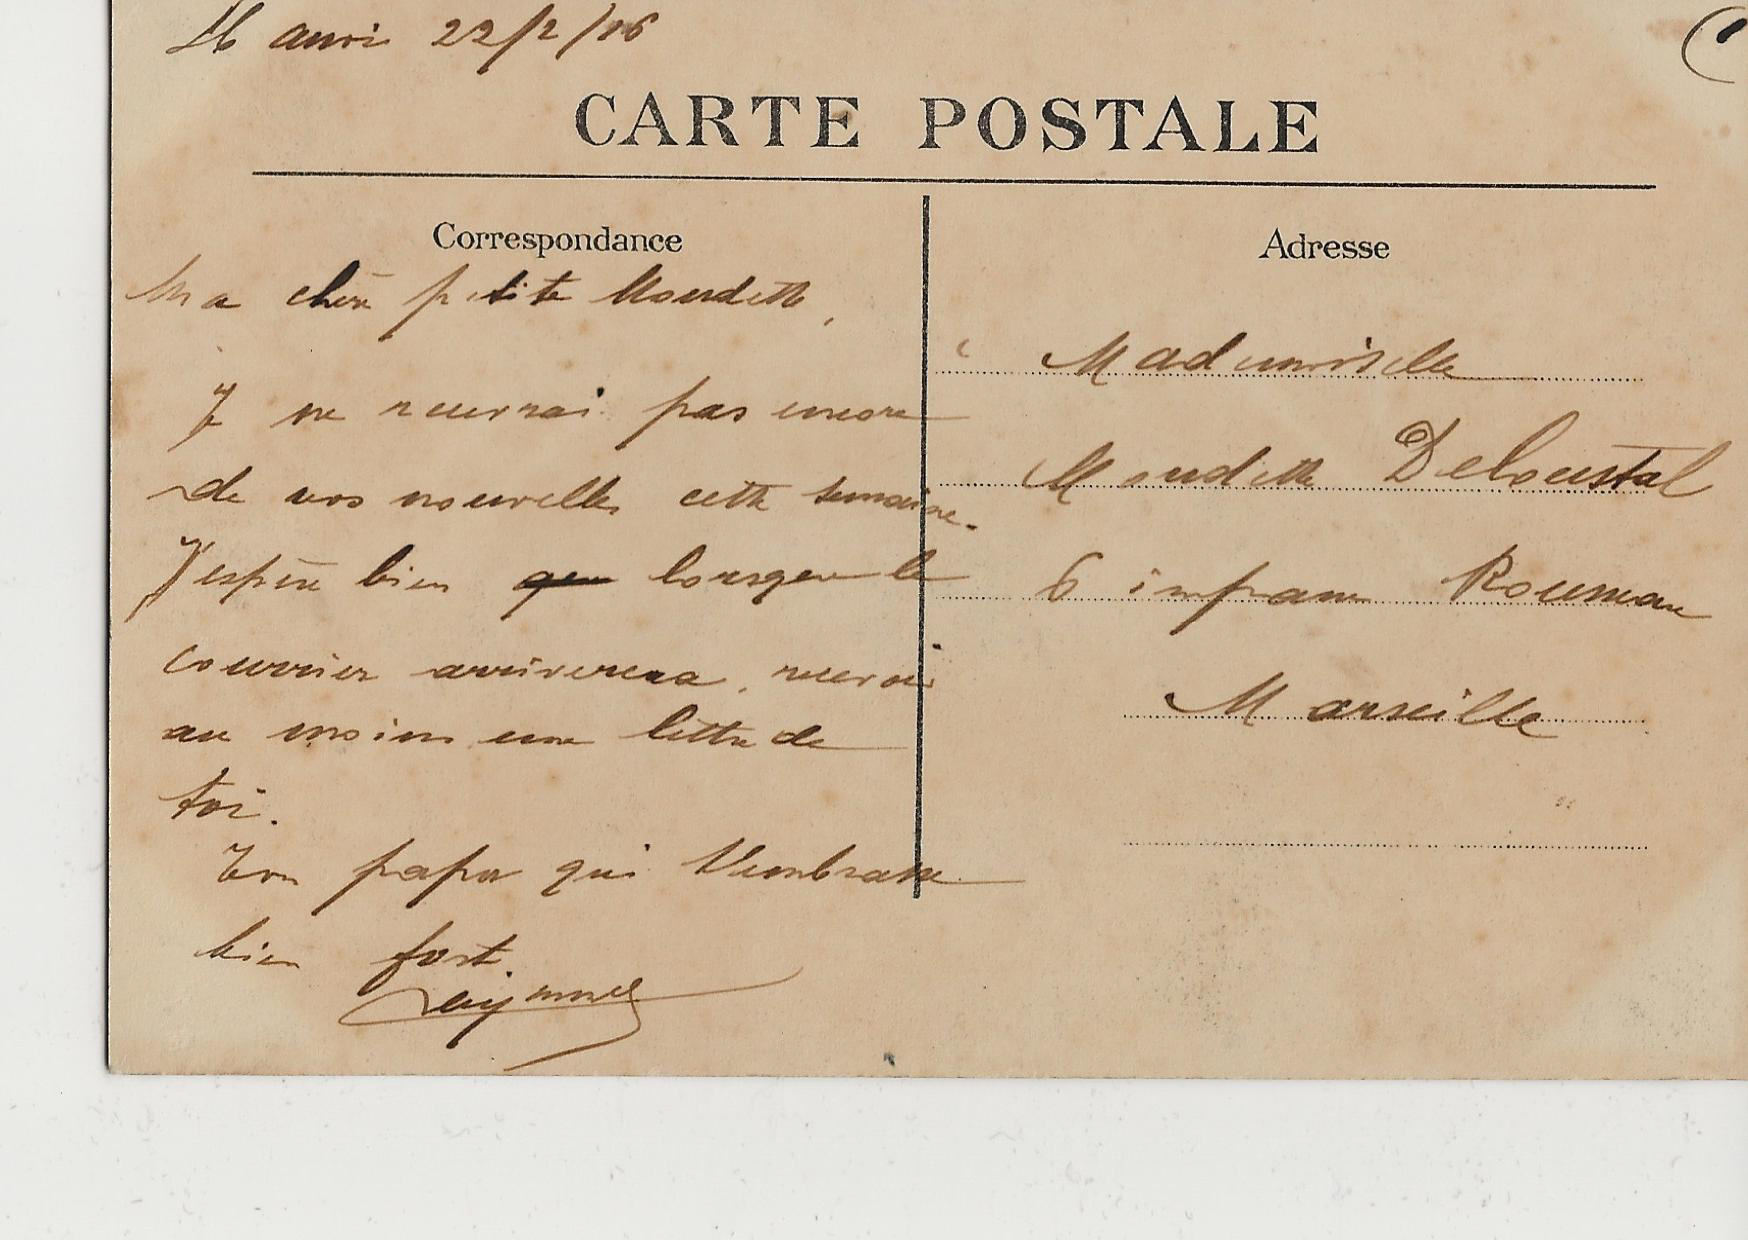 22/2/06
CARTE POSTALE
Correspondance
Adresse
Ma chère petite Moudette,
Je ne recevrai pas encore
de vos nouvelles cette semaine.
J'espère bien que lorsque le
courrier arriverera, recevoir
au moins une lettre de
toi.
Ton papa qui t'embrasse
bien fort.
Raymond
Mademoiselle
Moudette Deloustal
6 impasse
Marseille